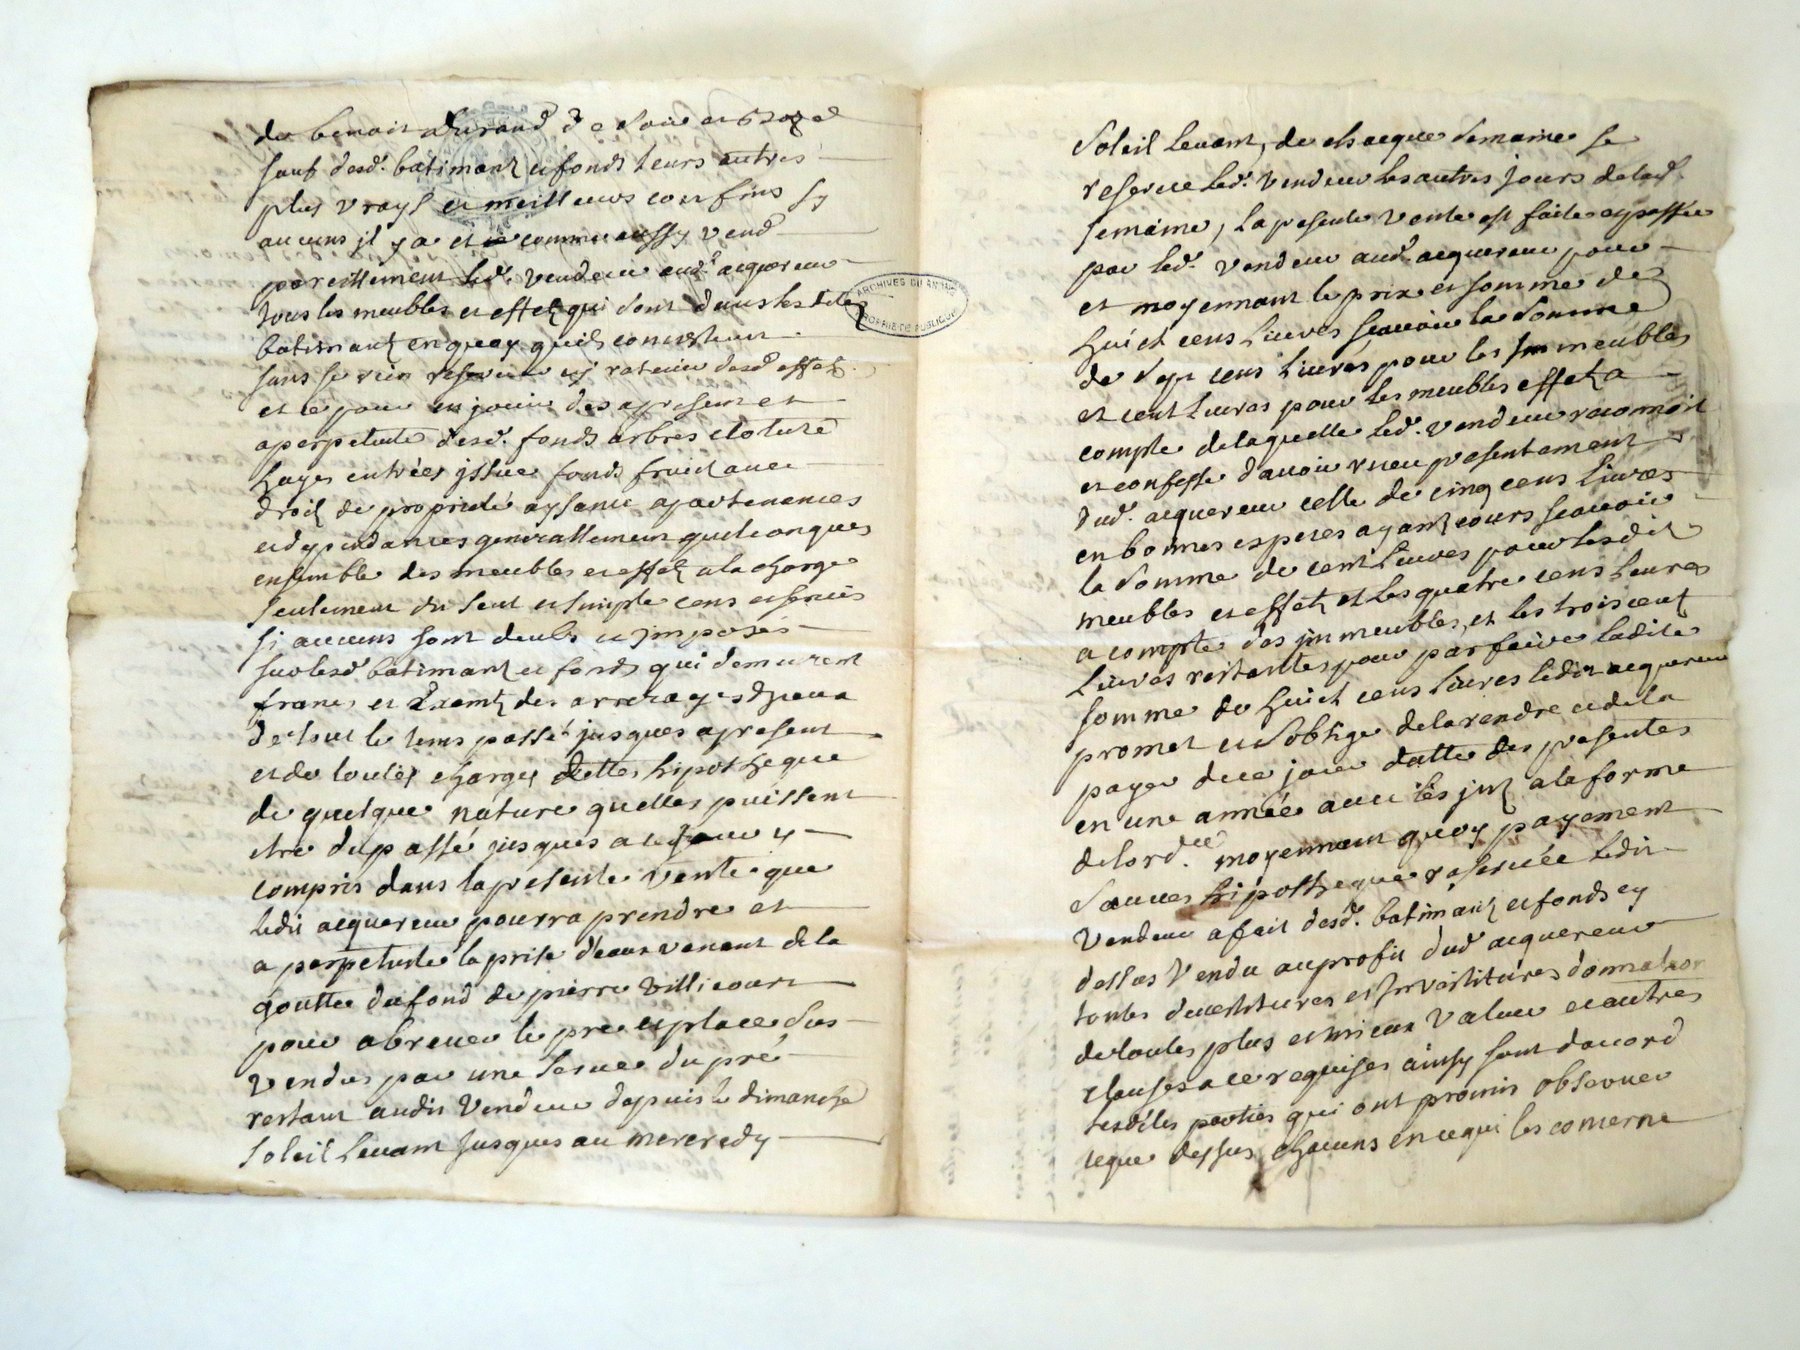 de benoit durand de soir et bize
sauf desd. batimantz et fonds leurs autres
plus vrays et meilleurs confins sy
aucuns jl y a et comme aussy vend
pareillement led. vendeur aud. acquereur
tous les meubles et effetz qui sont dans lesdites
batimantz en quoy quils consistent
sans se rien reserver ny retenir desd effetz
et ce pour en jouir des apresent et
aperpetuité desd. fonds arbres cloture
hayes entrées jssue fonds fruitz avec
droitz de proprieté aysance apartenances
et dependances generallement quelconques
ensemble des meubles et effetz ala charge
seulement du seul et simple cens et servis
si aucuns sont deubs et jmposés
sur lesd batimantz et fonds qui demeurent
francs et Exemtz des arrerages dyceux
de tout le tems passé jusques apresent
et de toutes charges dettes hipotheque
de quelque nature quelles puissent
etre du passé jusques a ce jour y
compris dans la presente vente que
ledit acquereur pourra prendre et
a perpetuité la prise deaux venant de la
goutte du fond de pierre villicourt
pour abreuer le pre et place sus
vendus par une serve du pré
restant audit vendeur depuis le dimanche
soleil levant jusques au mercredy
ARCHIVES DU
PROPRIÉTÉ PUBLIQUE
soleil levant, de chacque semaine se
reserve led. vendeur les autres jours de lad.
semaine, la presente vente est faite et passée
par led. vendeur aud. acquereur pour
et moyennant le prix et somme de
huict cens livres scavoir la somme
de sept cens livres pour les jmmeubles
et cent livres pour les meubles effetz a
compte de laquelle led. vendeur reconnoit
et confesse davoir receu presentement
dud. acquereur celle de cinq cens livres
en bonnes especes ayant cours scavoir
la somme de cent livres pour lesdit
meubles et effetz et les quatre cens livres
a compte des jmmeubles, et les trois cent
livres restantes pour parfaire ladite
somme de huict cens livres ledit acquereur
promet et soblige de la rendre et de la
payer de ce jour datte des presentes
en une année avec les jnz ala forme
de lord.ce moyennant quoy payement
sauves hipotheque reservée ledit
vendeur a fait desd. batimantz et fonds cy
dessus vendu au profit dud acquereur
toutes devestitures et jnvestitures donnation
de toutes plus et mieux value et autres
clauses a ce requises ainsy sont daccord
lesdites parties qui ont promis observer
ceque dessus chacuns en ce qui les concerne